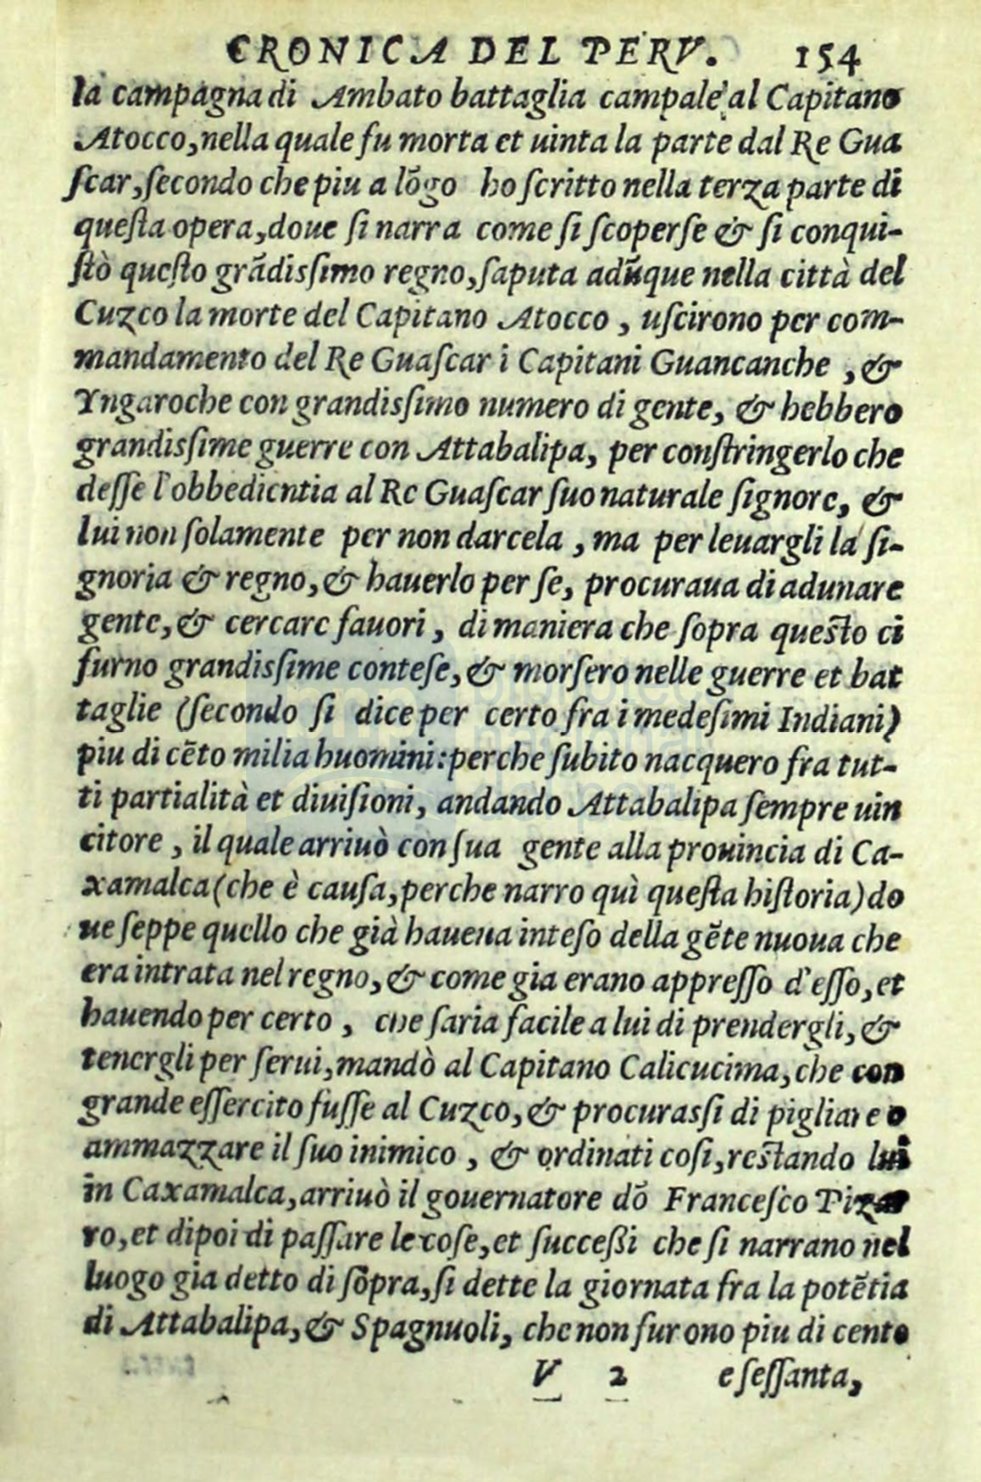 CRONICA DEL PERV. 154
la campagna di Ambato battaglia campale al Capitano
Atocco, nella quale fu morta et uinta la parte dal Re Gua
ſcar, ſecondo che piu a lõgo ho ſcritto nella terza parte di
queſta opera, doue ſi narra come ſi ſcoperſe & ſi conqui-
ſtò queſto grãdisſimo regno, ſaputa adũque nella città del
Cuzco la morte del Capitano Atocco, uſcirono per com-
mandamento del Re Guaſcar i Capitani Guancanche, &
Yngaroche con grandisſimo numero di gente, & hebbero
grandisſime guerre con Attabalipa, per conſtringerlo che
deſſe l'obbedientia al Re Guaſcar ſuo naturale ſignore, &
lui non ſolamente per non darcela, ma per leuargli la ſi-
gnoria & regno, & hauerlo per ſe, procuraua di adunare
gente, & cercare fauori, di maniera che ſopra queſto ci
furno grandisſime conteſe, & morſero nelle guerre et bat
taglie (ſecondo ſi dice per certo fra i medeſimi Indiani)
piu di cẽto milia huomini: perche ſubito nacquero fra tut-
ti partialità et diuiſioni, andando Attabalipa ſempre uin
citore, il quale arriuò con ſua gente alla prouincia di Ca-
xamalca (che è cauſa, perche narro quì queſta hiſtoria) do
ue ſeppe quello che già haueua inteſo della gẽte nuoua che
era intrata nel regno, & come gia erano appreſſo d'eſſo, et
hauendo per certo, che ſaria facile a lui di prendergli, &
tenergli per ſerui, mandò al Capitano Calicucima, che con
grande eſſercito fuſſe al Cuzco, & procuraſſi di pigliare o
ammazzare il ſuo inimico, & ordinati coſi, reſtando lui
in Caxamalca, arriuò il gouernatore dõ Franceſco Pizar
ro, et dipoi di paſſare le coſe, et ſucceßi che ſi narrano nel
luogo gia detto di ſopra, ſi dette la giornata fra la potẽtia
di Attabalipa, & Spagnuoli, che non furono piu di cento
V 2 e ſeſſanta,